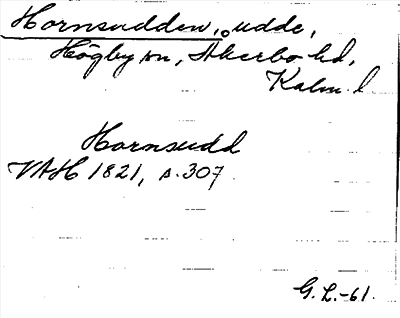 Hornsudden, udde,
Högby sn, Åkerbo hd,
Kalm. l
Hornsudd
VAH 1821, s. 307.
G. L. -61.